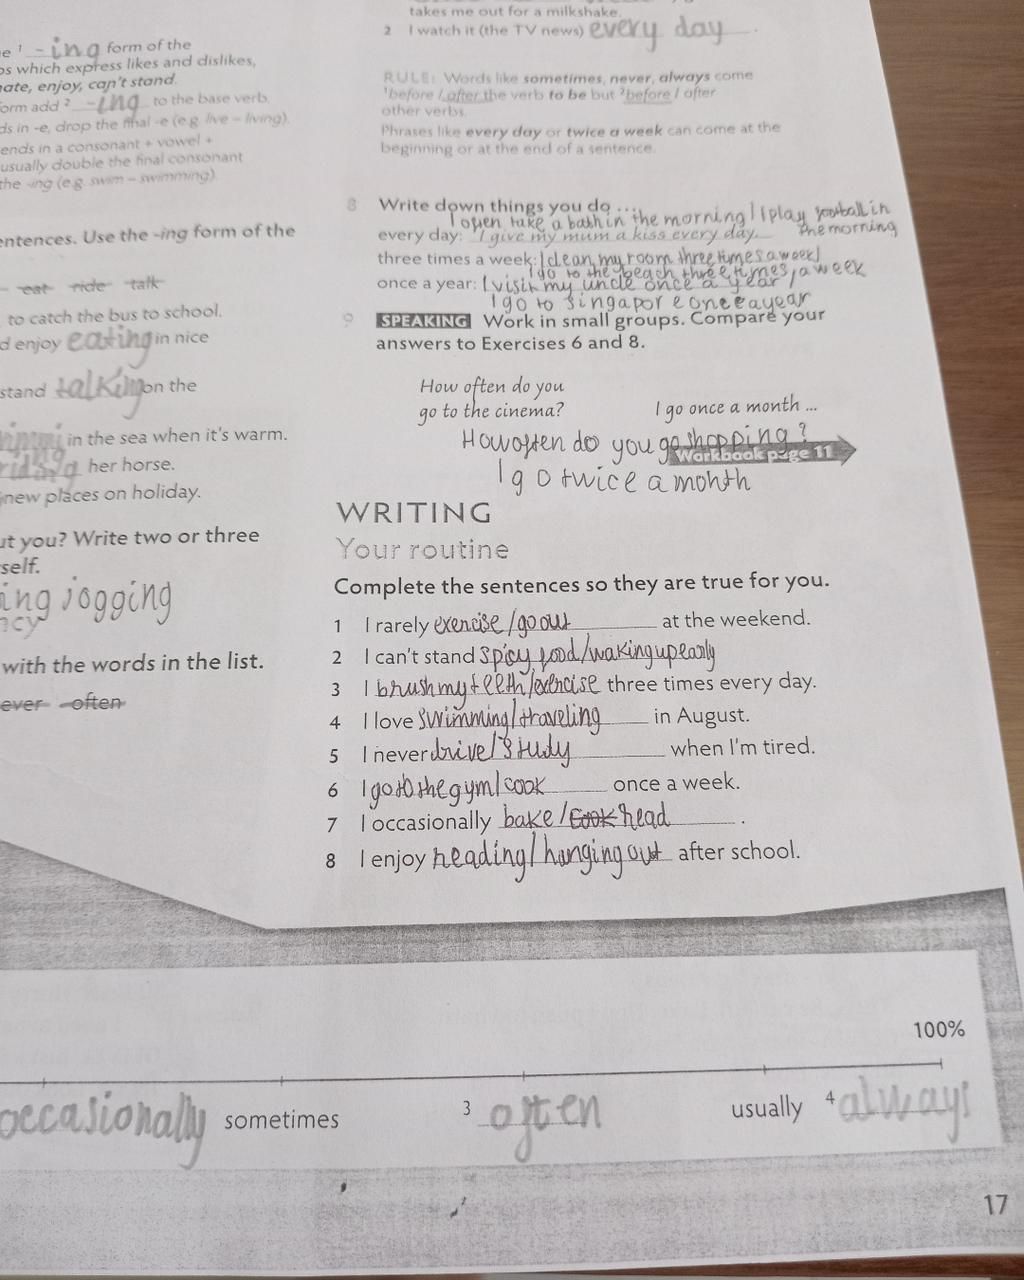 takes me out for a milkshake.
2 I watch it (the TV news) every day.
e ¹ -ing form of the
os which express likes and dislikes,
hate, enjoy, can't stand.
form add ² -ing to the base verb.
ds in -e, drop the final -e (e.g. live – living).
ends in a consonant + vowel +
usually double the final consonant
the -ing (e.g. swim – swimming).
entences. Use the -ing form of the
eat ride talk
to catch the bus to school.
d enjoy eating in nice
stand talking on the
in the sea when it's warm.
riding her horse.
new places on holiday.
ut you? Write two or three
self.
ing jogging
ncy
with the words in the list.
ever often
RULE: Words like sometimes, never, always come
¹before / after the verb to be but ²before / after
other verbs.
Phrases like every day or twice a week can come at the
beginning or at the end of a sentence.
8 Write down things you do …
I often take a bath in the morning / I play football in
the morning
every day: I give my mum a kiss every day.
three times a week: I clean my room three times a week /
I go to the beach three times a week
once a year: I visit my uncle once a year /
I go to singapore once a year
9 SPEAKING Work in small groups. Compare your
answers to Exercises 6 and 8.
How often do you
go to the cinema?
I go once a month ...
How often do you go shopping?
Workbook page 11
I go twice a month
WRITING
Your routine
Complete the sentences so they are true for you.
1 I rarely exercise / go out at the weekend.
2 I can't stand spicy food / waking up early
3 I brush my teeth / exercise three times every day.
4 I love swimming / traveling in August.
5 I never drive / study when I'm tired.
6 I go to the gym / cook once a week.
7 I occasionally bake / cook read.
8 I enjoy reading / hanging out after school.
100%
occasionally sometimes ³ often usually ⁴ always
17